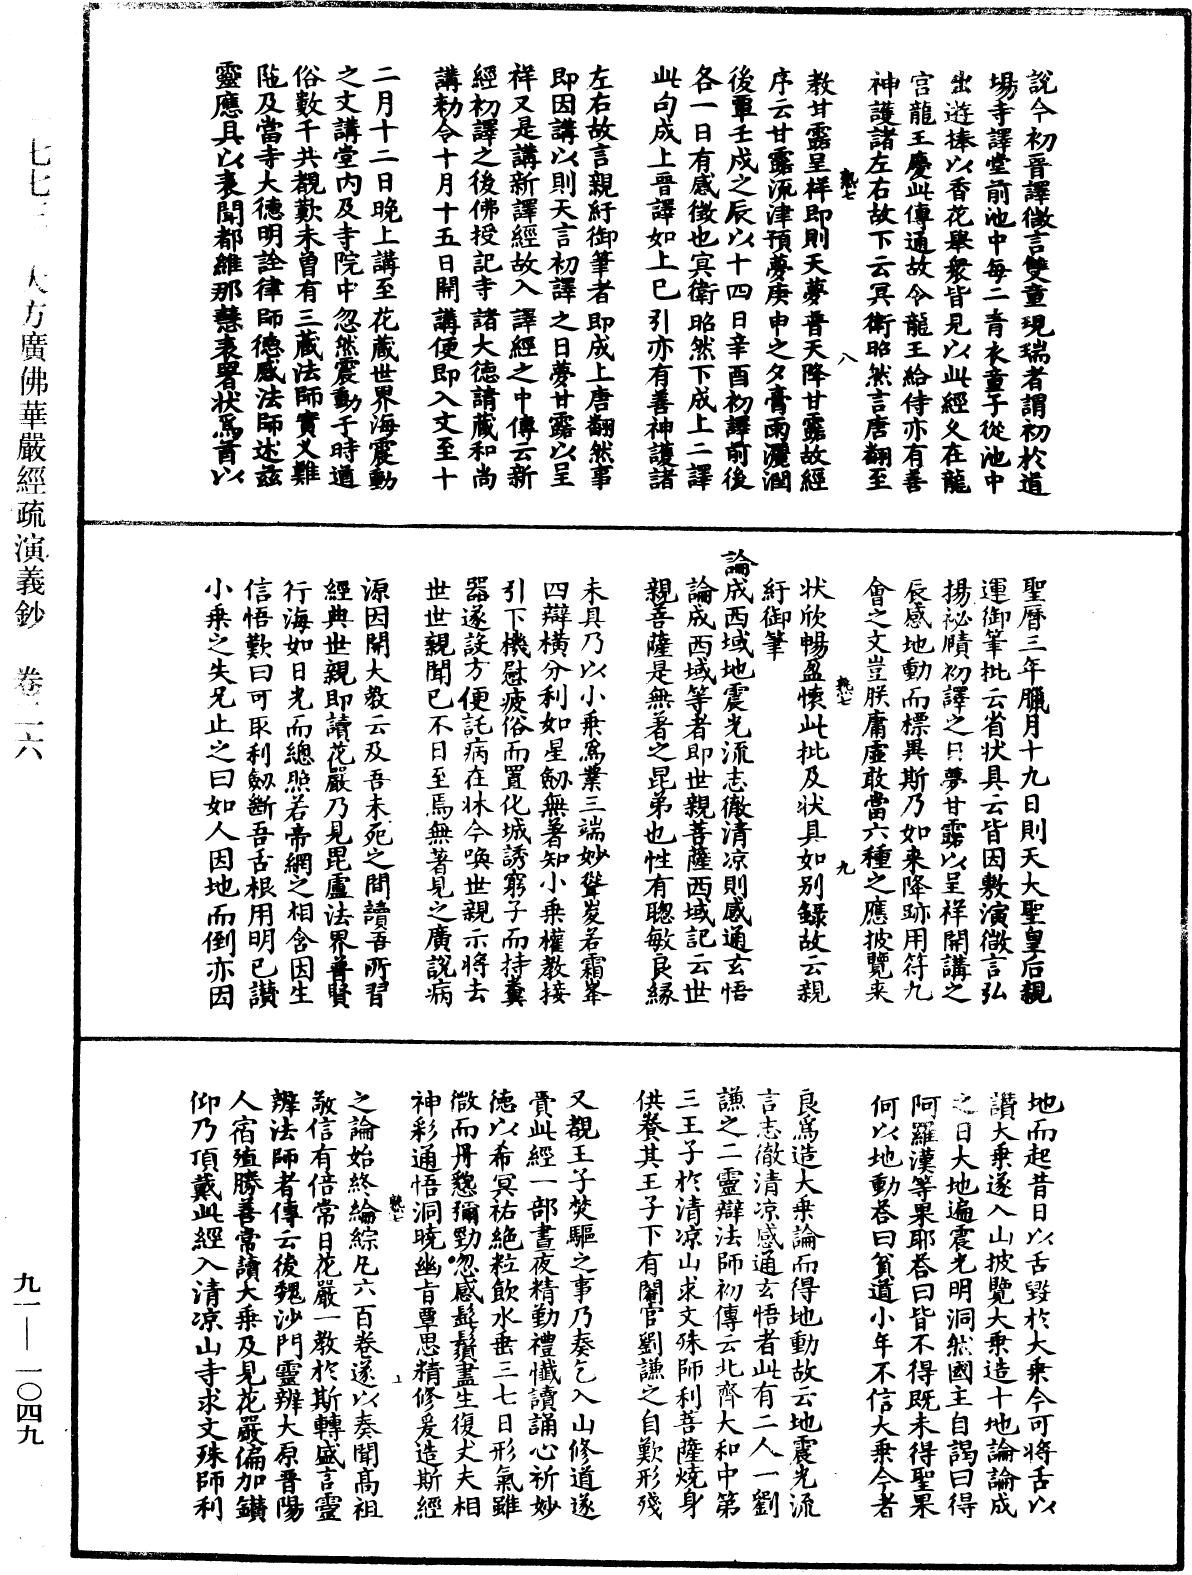 說今初晉譯微言雙童現瑞者謂初於道
場寺譯堂前池中每二青衣童子從池中
出遊捧以香花舉衆皆見以此經久在龍
宮龍王慶此傳通故令龍王給侍亦有善
神護諸左右故下云冥衛昭然言唐翻至
教甘露呈祥即則天夢普天降甘露故經
序云甘露流津預夢庚申之夕膏雨灑潤
後覃壬戌之辰以十四日辛酉初譯前後
各一日有感徵也冥衛昭然下成上二譯
此句成上晉譯如上已引亦有善神護諸
左右故言親紆御筆者即成上唐翻然事
即因講以則天言初譯之日夢甘露以呈
祥又是講新譯經故入譯經之中傳云新
經初譯之後佛授記寺諸大德請藏和尚
講勑令十月十五日開講便即入文至十
二月十二日晚上講至花藏世界海震動
之文講堂內及寺院中忽然震動于時道
俗數千共覩歎未曾有三藏法師實叉難
陁及當寺大德明詮律師德感法師述兹
靈應具以表聞都維那慧表署状爲首以
聖曆三年臘月十九日則天大聖皇后親
運御筆批云省状具云皆因敷演微言弘
揚祕賾初譯之日夢甘露以呈祥開講之
辰感地動而標異斯乃如来降跡用符九
會之文豈朕庸虛敢當六種之應披覽来
状欣暢盈懷此批及状具如别録故云親
紆御筆
論成西域地震光流志徹清凉則感通玄悟
論成西域等者即世親菩薩西域記云世
親菩薩是無著之昆弟也性有聰敏良緣
未具乃以小乗爲業三端妙聳岌若霜峯
四辯橫分利如星劔無著知小乗權教接
引下機慰疲俗而置化城誘窮子而持糞
器遂設方便託病在牀令喚世親示將去
世世親聞已不日至焉無著見之廣說病
源因開大教云及吾未死之間讀吾所習
經典世親即讀花嚴乃見毘盧法界普賢
行海如日光而總照若帝網之相含因生
信悟歎曰可取利劔斷吾舌根用明已讃
小乗之失兄止之曰如人因地而倒亦因
地而起昔日以舌毀於大乗今可將舌以
讃大乗遂入山披覽大乗造十地論論成
之日大地遍震光明洞然國主自謁曰得
阿羅漢等果耶荅曰皆不得既未得聖果
何以地動荅曰貧道小年不信大乗今者
良爲造大乗論而得地動故云地震光流
言志徹清凉感通玄悟者此有二人一劉
謙之二靈辯法師初傳云北齊大和中第
三王子於清凉山求文殊師利菩薩燒身
供養其王子下有閹官劉謙之自歎形殘
又覩王子焚軀之事乃奏乞入山修道遂
賷此經一部晝夜精勤禮懺讀誦心祈妙
德以希冥祐絶粒飲水垂三七日形氣雖
微而丹懇彌勁忽感髭鬚盡生復丈夫相
神彩通悟洞曉幽旨覃思精修爰造斯經
之論始終綸綜凡六百卷遂以奏聞高祖
敬信有倍常日花嚴一教於斯轉盛言靈
辨法師者傳云後魏沙門靈辨大原晉陽
人宿殖勝善常讀大乗及見花嚴偏加鑚
仰乃頂戴此經入清凉山寺求文殊師利
八
九
大方廣佛華嚴經疏演義鈔
九一——一〇四九